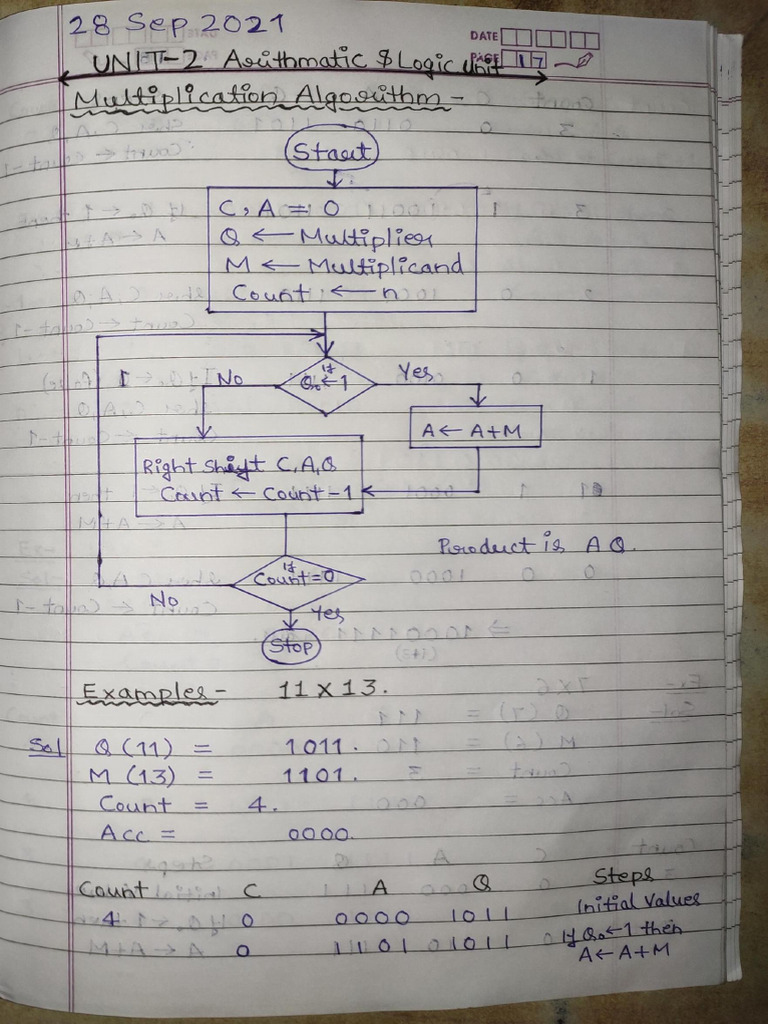 28 Sep 2021
DATE
PAGE 17
UNIT-2 Arithmatic & Logic unit
Multiplication Algorithm -
Start
C, A = 0
Q ← Multiplier
M ← Multiplicand
Count ← n
If
Q₀ ← 1
No
Yes
A ← A+M
Right Shift C, A, Q
Count ← Count - 1
Product is AQ.
If
Count = 0
No
Yes
Stop
Examples - 11 x 13.
Sol Q (11) = 1011.
M (13) = 1101.
Count = 4.
Acc = 0000.
Count C A Q Steps
4 0 0000 1011 Initial Values
0 1101 1011 If Q₀ ← 1 then
A ← A+M